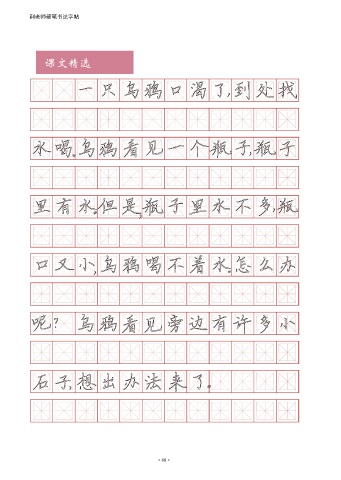 课文精选
一只乌鸦口渴了,到处找
水喝。乌鸦看见一个瓶子,瓶子
里有水。但是,瓶子里水不多,瓶
口又小,乌鸦喝不着水。怎么办
呢？乌鸦看见旁边有许多小
石子,想出办法来了。